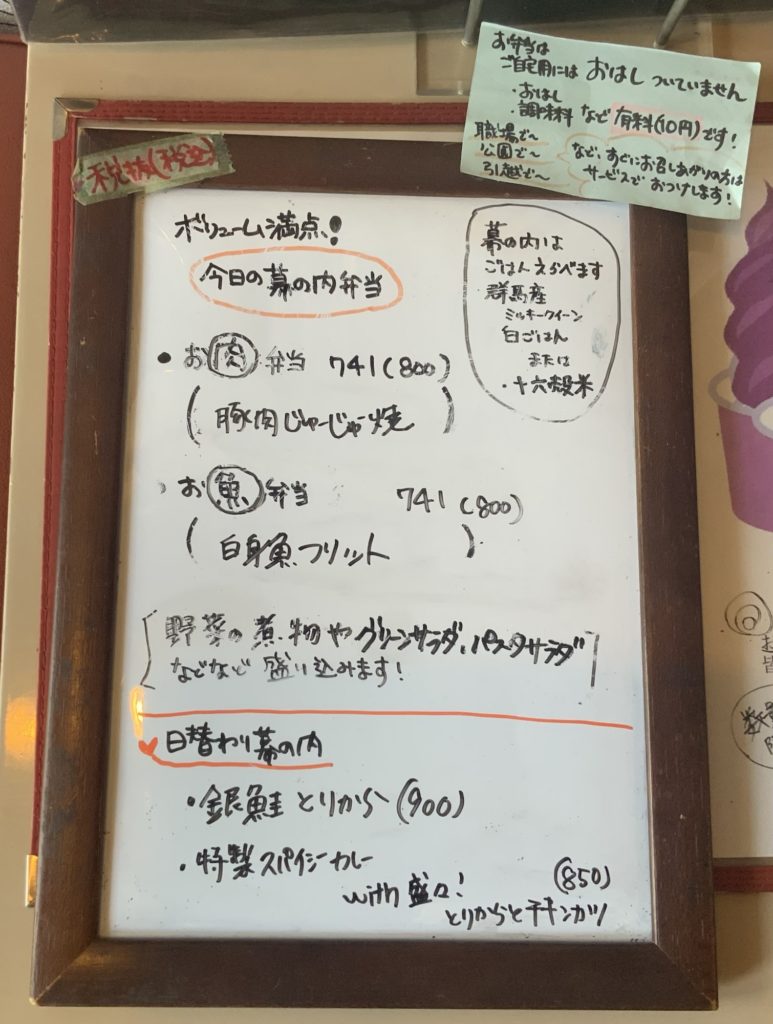 お弁当は
ご自宅用には おはし ついていません
・おはし
・調味料 など 有料(10円)です!
職場で〜
公園で〜
引越で〜
など、すぐにお召しあがりの方は
サービスで おつけします!
税抜(税込)
ボリューム満点!
今日の幕の内弁当
幕の内は
ごはんえらべます
群馬産
ミルキークイーン
白ごはん
または
・十六穀米
・お肉弁当 741(800)
(豚肉じゃーじゃー焼)
・お魚弁当 741(800)
(白身魚フリット)
[野菜の煮物やグリーンサラダ、パスタサラダ
などなど 盛り込みます!]
日替わり幕の内
・銀鮭とりから(900)
・特製スパイシーカレー
with 盛々! (850)
とりからとチキンカツ